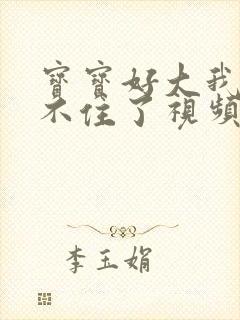 寶寶好大我
不住了視頻
李玉娟